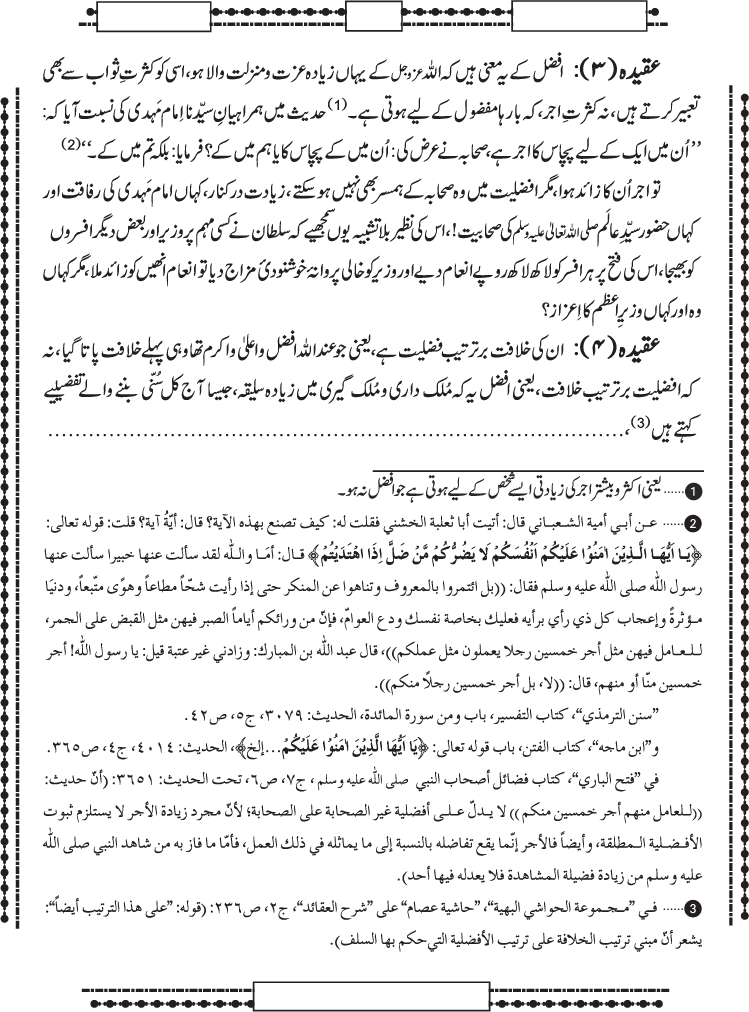 عقیدہ (۳): افضل کے یہ معنی ہیں کہ اللہ عزوجل کے یہاں زیادہ عزت و منزلت والا ہو، اسی کو کثرتِ ثواب سے بھی
تعبیر کرتے ہیں، نہ کثرتِ اجر، کہ بارہا مفضول کے لیے ہوتی ہے۔ (1) حدیث میں ہمراہیانِ سیّدنا اِمام مَہدی کی نسبت آیا کہ:
’’اُن میں ایک کے لیے پچاس کا اجر ہے، صحابہ نے عرض کی: اُن میں کے پچاس کا یا ہم میں کے؟ فرمایا: بلکہ تم میں کے۔‘‘ (2)
تو اجر اُن کا زائد ہوا، مگر افضلیت میں وہ صحابہ کے ہمسر بھی نہیں ہو سکتے، زیادت درکنار، کہاں امام مَہدی کی رفاقت اور
کہاں حضور سیّدِ عالَم صلی اللہ تعالیٰ علیہ وسلم کی صحابیت!، اس کی نظیر بلا تشبیہ یوں سمجھیے کہ سلطان نے کسی مہم پر وزیر اور بعض دیگر افسروں
کو بھیجا، اس کی فتح پر ہر افسر کو لاکھ لاکھ روپے انعام دیے اور وزیر کو خالی پروانۂ خوشنودیٔ مزاج دیا تو انعام انھیں کو زائد ملا، مگر کہاں
وہ اور کہاں وزیرِ اعظم کا اِعزاز؟
عقیدہ (۴): ان کی خلافت بر ترتیبِ فضلیت ہے، یعنی جو عند اللہ افضل و اعلیٰ و اکرم تھا وہی پہلے خلافت پاتا گیا، نہ
کہ افضلیت بر ترتیبِ خلافت، یعنی افضل یہ کہ مُلک داری و مُلک گیری میں زیادہ سلیقہ، جیسا آج کل سُنّی بننے والے تفضیلیے
کہتے ہیں (3)، ..........................................................................
1...... یعنی اکثر و بیشتر اجر کی زیادتی ایسے شخص کے لیے ہوتی ہے جو افضل نہ ہو۔
2...... عن أبي أمية الشعباني قال: أتيت أبا ثعلبة الخشني فقلت له: كيف تصنع بهذه الآية؟ قال: أيّةُ آية؟ قلت: قوله تعالى:
﴿يَا اَيُّهَا الَّذِيْنَ اٰمَنُوْا عَلَيْكُمْ اَنْفُسَكُمْ لَا يَضُرُّكُمْ مَّنْ ضَلَّ اِذَا اهْتَدَيْتُمْ﴾ قال: أمَا واللّٰه لقد سألت عنها خبيرا سألت عنها
رسول اللّٰه صلى اللّٰه عليه وسلم فقال: ((بل ائتمروا بالمعروف وتناهوا عن المنكر حتى إذا رأيت شحّاً مطاعاً وهوًى متّبعاً، ودنيَا
مؤثرةً وإعجاب كل ذي رأي برأيه فعليك بخاصة نفسك ودع العوامّ، فإنّ من ورائكم أياماً الصبر فيهن مثل القبض على الجمر،
للعامل فيهن مثل أجر خمسين رجلا يعملون مثل عملكم))، قال عبد اللّٰه بن المبارك: وزادني غير عتبة قيل: يا رسول اللّٰه! أجر
خمسين منّا أو منهم، قال: ((لا، بل أجر خمسين رجلًا منكم)).
”سنن الترمذي“، كتاب التفسير، باب ومن سورة المائدة، الحديث: ٣٠٧٩، ج٥، ص٤٢.
و”ابن ماجه“، كتاب الفتن، باب قوله تعالى: ﴿يَا اَيُّهَا الَّذِيْنَ اٰمَنُوْا عَلَيْكُمْ...إلخ﴾، الحديث: ٤٠١٤، ج٤، ص٣٦٥.
في ”فتح الباري“، كتاب فضائل أصحاب النبي صلى اللّٰه عليه وسلم، ج٧، ص٦، تحت الحديث: ٣٦٥١: (أنّ حديث:
((للعامل منهم أجر خمسين منكم)) لا يدلّ على أفضلية غير الصحابة على الصحابة؛ لأنّ مجرد زيادة الأجر لا يستلزم ثبوت
الأفضلية المطلقة، وأيضاً فالأجر إنّما يقع تفاضله بالنسبة إلى ما يماثله في ذلك العمل، فأمّا ما فاز به من شاهد النبي صلى اللّٰه
عليه وسلم من زيادة فضيلة المشاهدة فلا يعدله فيها أحد).
3...... في ”مجموعة الحواشي البهية“، ”حاشية عصام“ على ”شرح العقائد“، ج٢، ص٢٣٦: (قوله: ”على هذا الترتيب أيضاً“:
يشعر أنّ مبنى ترتيب الخلافة على ترتيب الأفضلية التي حكم بها السلف).